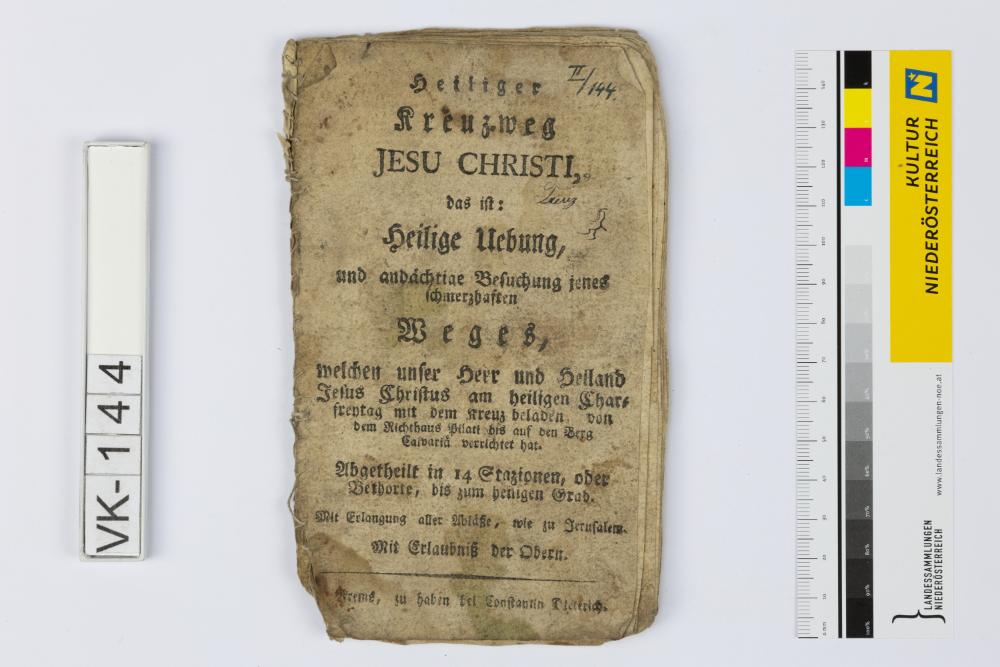 Heiliger
II/144.
Kreuzweg
JESU CHRISTI,
das ist:
Heilige Uebung,
und andächtige Besuchung jenes
schmerzhaften
Weges,
welchen unser Herr und Heiland
Jesus Christus am heiligen Char-
freytag mit dem Kreuz beladen, von
dem Richthaus Pilati bis auf den Berg
Calvariä verrichtet hat.
Abgetheilt in 14 Stazionen, oder
Bethorte, bis zum heiligen Grab.
Mit Erlangung aller Abläße, wie zu Jerusalem.
Mit Erlaubniß der Obern.
Krems, zu haben bei Constantin Dieterich.
VK-144
KULTUR
NIEDERÖSTERREICH
N
www.landessammlungen-noe.at
LANDESSAMMLUNGEN
NIEDERÖSTERREICH